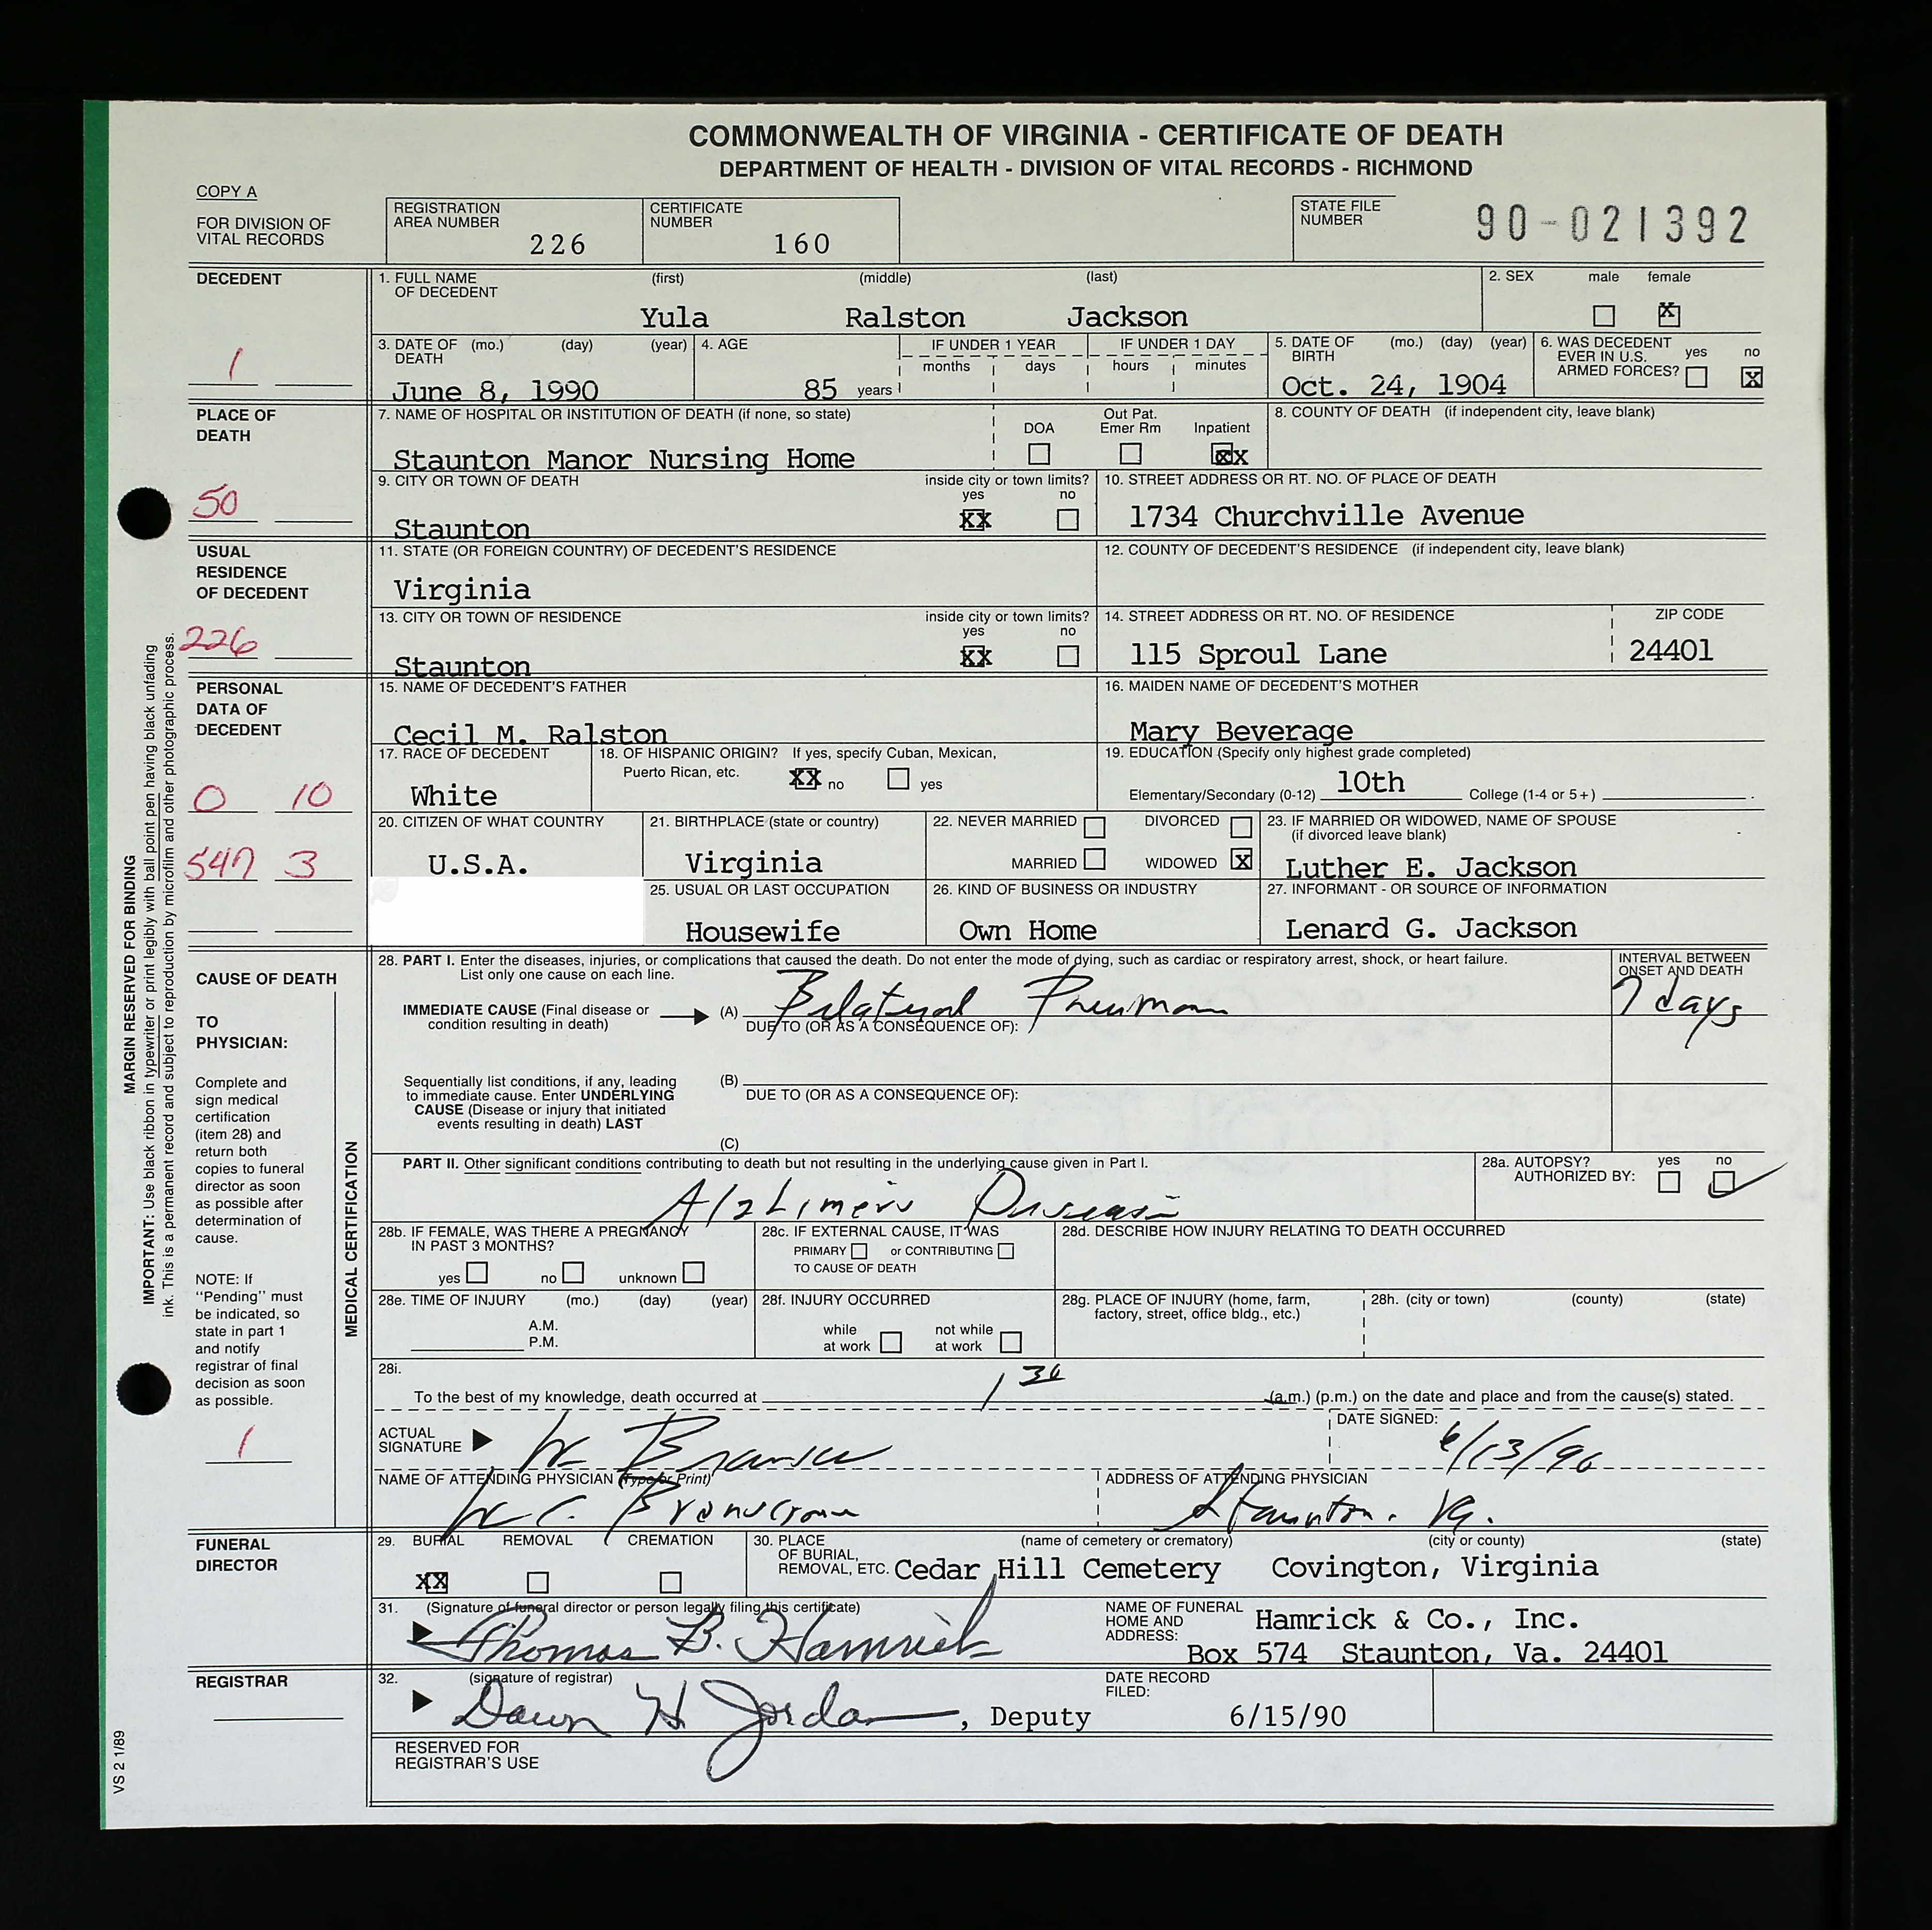 COMMONWEALTH OF VIRGINIA - CERTIFICATE OF DEATH
DEPARTMENT OF HEALTH - DIVISION OF VITAL RECORDS - RICHMOND
COPY A
FOR DIVISION OF
VITAL RECORDS
REGISTRATION
AREA NUMBER
226
CERTIFICATE
NUMBER
160
STATE FILE
NUMBER
90-021392
DECEDENT
1
1. FULL NAME
OF DECEDENT
(first) (middle) (last)
Yula Ralston Jackson
2. SEX male female
X
3. DATE OF (mo.) (day) (year)
DEATH
June 8, 1990
4. AGE
85 years
IF UNDER 1 YEAR
months days
IF UNDER 1 DAY
hours minutes
5. DATE OF (mo.) (day) (year)
BIRTH
Oct. 24, 1904
6. WAS DECEDENT
EVER IN U.S.
ARMED FORCES?
yes no
X
PLACE OF
DEATH
50
7. NAME OF HOSPITAL OR INSTITUTION OF DEATH (if none, so state)
Staunton Manor Nursing Home
DOA
Out Pat.
Emer Rm
Inpatient
XX
8. COUNTY OF DEATH (if independent city, leave blank)
9. CITY OR TOWN OF DEATH
Staunton
inside city or town limits?
yes no
XX
10. STREET ADDRESS OR RT. NO. OF PLACE OF DEATH
1734 Churchville Avenue
USUAL
RESIDENCE
OF DECEDENT
226
11. STATE (OR FOREIGN COUNTRY) OF DECEDENT'S RESIDENCE
Virginia
12. COUNTY OF DECEDENT'S RESIDENCE (if independent city, leave blank)
13. CITY OR TOWN OF RESIDENCE
Staunton
inside city or town limits?
yes no
XX
14. STREET ADDRESS OR RT. NO. OF RESIDENCE
115 Sproul Lane
ZIP CODE
24401
PERSONAL
DATA OF
DECEDENT
0 10
547 3
15. NAME OF DECEDENT'S FATHER
Cecil M. Ralston
16. MAIDEN NAME OF DECEDENT'S MOTHER
Mary Beverage
17. RACE OF DECEDENT
White
18. OF HISPANIC ORIGIN? If yes, specify Cuban, Mexican,
Puerto Rican, etc.
XX no yes
19. EDUCATION (Specify only highest grade completed)
Elementary/Secondary (0-12) 10th College (1-4 or 5+)
20. CITIZEN OF WHAT COUNTRY
U.S.A.
21. BIRTHPLACE (state or country)
Virginia
22. NEVER MARRIED DIVORCED
MARRIED WIDOWED X
23. IF MARRIED OR WIDOWED, NAME OF SPOUSE
(if divorced leave blank)
Luther E. Jackson
25. USUAL OR LAST OCCUPATION
Housewife
26. KIND OF BUSINESS OR INDUSTRY
Own Home
27. INFORMANT - OR SOURCE OF INFORMATION
Lenard G. Jackson
CAUSE OF DEATH
TO
PHYSICIAN:
Complete and
sign medical
certification
(item 28) and
return both
copies to funeral
director as soon
as possible after
determination of
cause.
NOTE: If
"Pending" must
be indicated, so
state in part 1
and notify
registrar of final
decision as soon
as possible.
1
MEDICAL CERTIFICATION
28. PART I. Enter the diseases, injuries, or complications that caused the death. Do not enter the mode of dying, such as cardiac or respiratory arrest, shock, or heart failure.
List only one cause on each line.
INTERVAL BETWEEN
ONSET AND DEATH
IMMEDIATE CAUSE (Final disease or
condition resulting in death)
(A) Bilateral
7 days
DUE TO (OR AS A CONSEQUENCE OF):
Sequentially list conditions, if any, leading
to immediate cause. Enter UNDERLYING
CAUSE (Disease or injury that initiated
events resulting in death) LAST
(B)
DUE TO (OR AS A CONSEQUENCE OF):
(C)
PART II. Other significant conditions contributing to death but not resulting in the underlying cause given in Part I.
Alzhimers Disease
28a. AUTOPSY?
AUTHORIZED BY:
yes no
28b. IF FEMALE, WAS THERE A PREGNANCY
IN PAST 3 MONTHS?
yes no unknown
28c. IF EXTERNAL CAUSE, IT WAS
PRIMARY or CONTRIBUTING
TO CAUSE OF DEATH
28d. DESCRIBE HOW INJURY RELATING TO DEATH OCCURRED
28e. TIME OF INJURY (mo.) (day) (year)
A.M.
P.M.
28f. INJURY OCCURRED
while
at work
not while
at work
28g. PLACE OF INJURY (home, farm,
factory, street, office bldg., etc.)
28h. (city or town) (county) (state)
28i.
To the best of my knowledge, death occurred at 1 30 (a.m.) (p.m.) on the date and place and from the cause(s) stated.
ACTUAL
SIGNATURE
DATE SIGNED:
6/13/90
NAME OF ATTENDING PHYSICIAN (Type or Print)
W C
ADDRESS OF ATTENDING PHYSICIAN
Staunton. Va.
FUNERAL
DIRECTOR
29. BURIAL REMOVAL CREMATION
XX
30. PLACE
OF BURIAL,
REMOVAL, ETC.
(name of cemetery or crematory) (city or county) (state)
Cedar Hill Cemetery Covington, Virginia
31. (Signature of funeral director or person legally filing this certificate)
Thomas B. Hamrick
NAME OF FUNERAL
HOME AND
ADDRESS:
Hamrick & Co., Inc.
Box 574 Staunton, Va. 24401
REGISTRAR
32. (signature of registrar)
Dawn H. Jordan, Deputy
DATE RECORD
FILED:
6/15/90
RESERVED FOR
REGISTRAR'S USE
MARGIN RESERVED FOR BINDING
IMPORTANT: Use black ribbon in typewriter or print legibly with ball point pen having black unfading
ink. This is a permanent record and subject to reproduction by microfilm and other photographic process.
VS 2 1/89